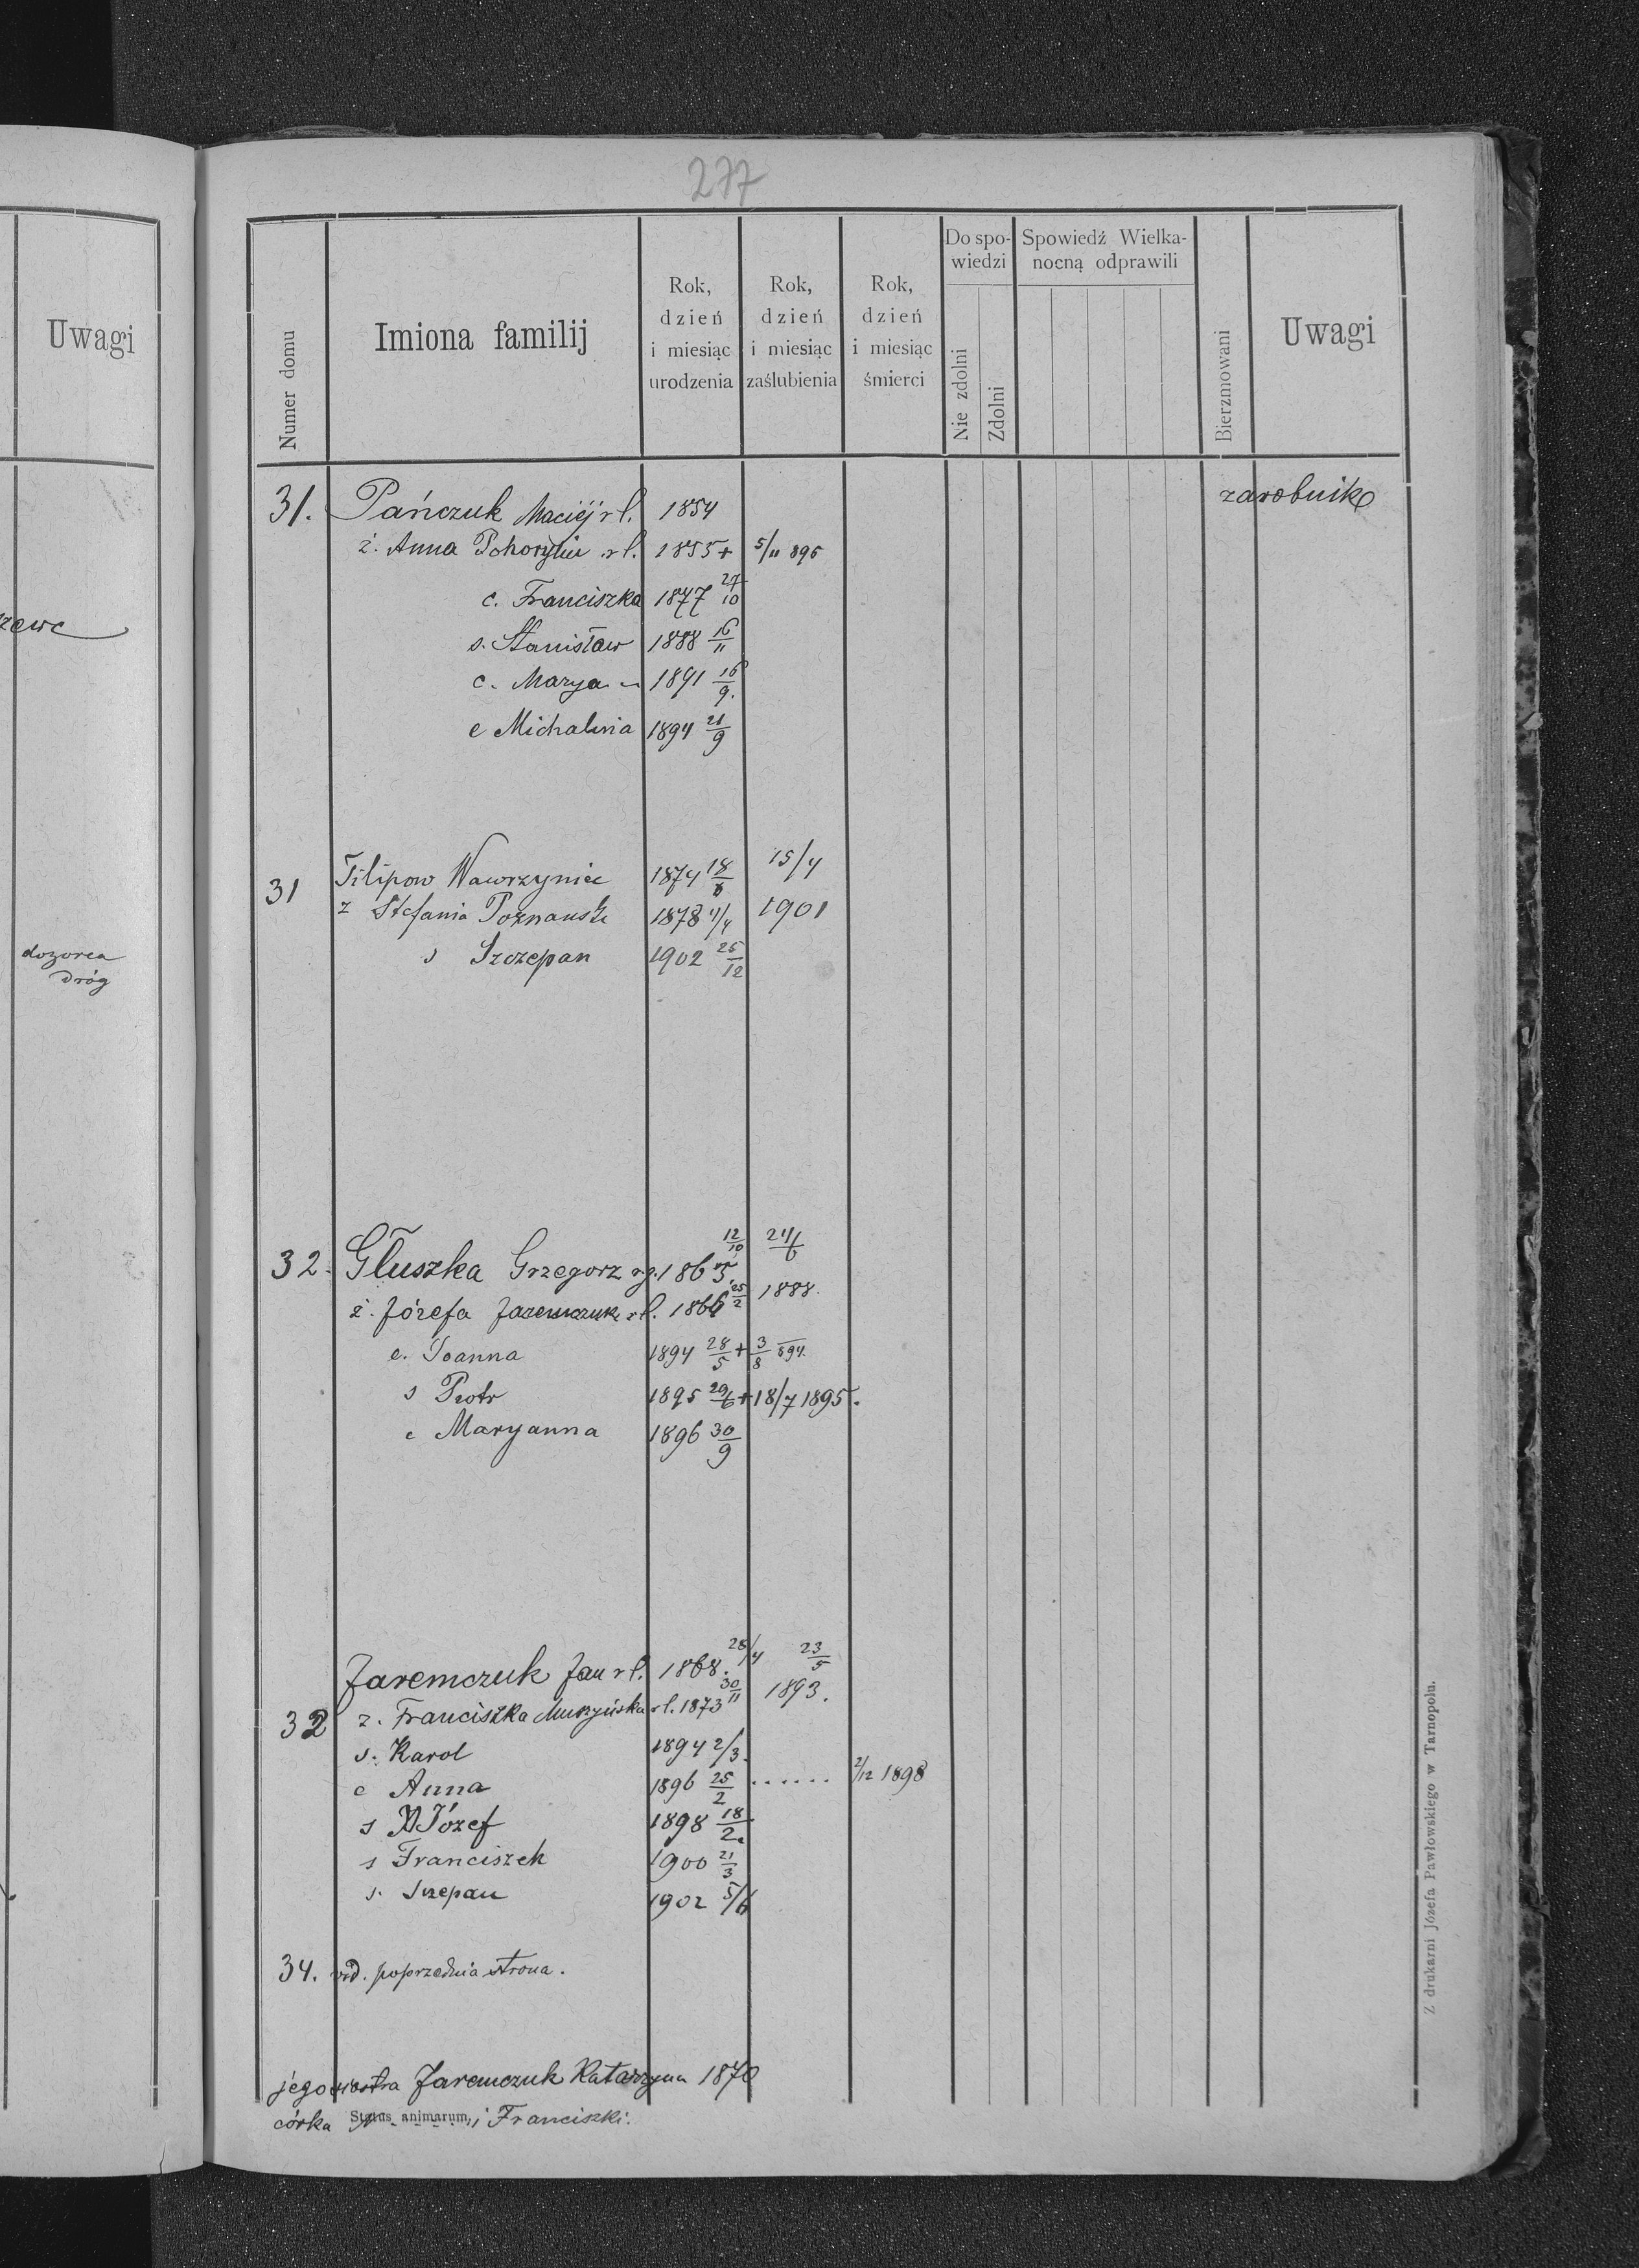 277
Uwagi
zewc
dozorca
dróg
Numer domu
Imiona familij
Rok,
dzień
i miesiąc
urodzenia
Rok,
dzień
i miesiąc
zaślubienia
Rok,
dzień
i miesiąc
śmierci
Do spo-
wiedzi
Nie zdolni
Zdolni
Spowiedź Wielka-
nocną odprawili
Bierzmowani
Uwagi
31. Pańczuk Maciéj rł. 1854 zarobnik
ż. Anna rł. 1855 + 5/11 895
c. Franciszka 1877 27/10
s. Stanisław 1888 16/11
c. Marya 1891 16/9.
c Michalina 1894 21/9
31 Filipow Wawrzyniec 1874 18/8 15/4
ż Stefania Poznańska 1878 11/4 1901
s Szczepan 1902 25/12
32. Głuszka Grzegorz rg. 1865 12/10 24/6
ż. Józefa Jaremczuk rł. 1866 25/2 1888.
c. Joanna 1894 28/5 + 3/8 894.
s Piotr 1895 29/6 + 18/7 1895.
c Maryanna 1896 30/9
Jaremczuk Jan rł. 1868. 28/4 23/5
32 ż. Franciszka Murzyńska rł. 1873 30/11 1893.
s. Karol 1894 2/3.
c Anna 1896 25/2 ...... 2/12 1898
s Józef 1898 18/2.
s Franciszek 1900 21/3
s. Szczepan 1902 5/6
34. vid. poprzednia strona.
jego siostra Jaremczuk Katarzyna 1870
córka i Franciszki.
Status animarum.
Z drukarni Józefa Pawłowskiego w Tarnopolu.